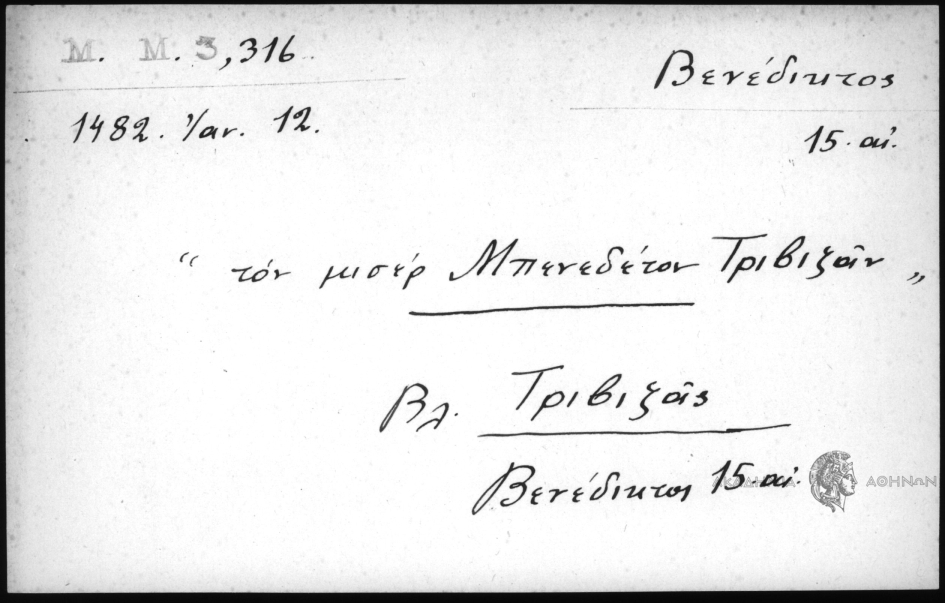 M. M. 3,316
Βενέδικτος
1482. Ἰαν. 12.
15. αἰ.
“ τόν μισέρ Μπενεδέτον Τριβιζᾶν „
Βλ. Τριβιζᾶς
Βενέδικτος 15. αἰ.
ΑΚΑΔΗΜΙΑ ΑΘΗΝΩΝ